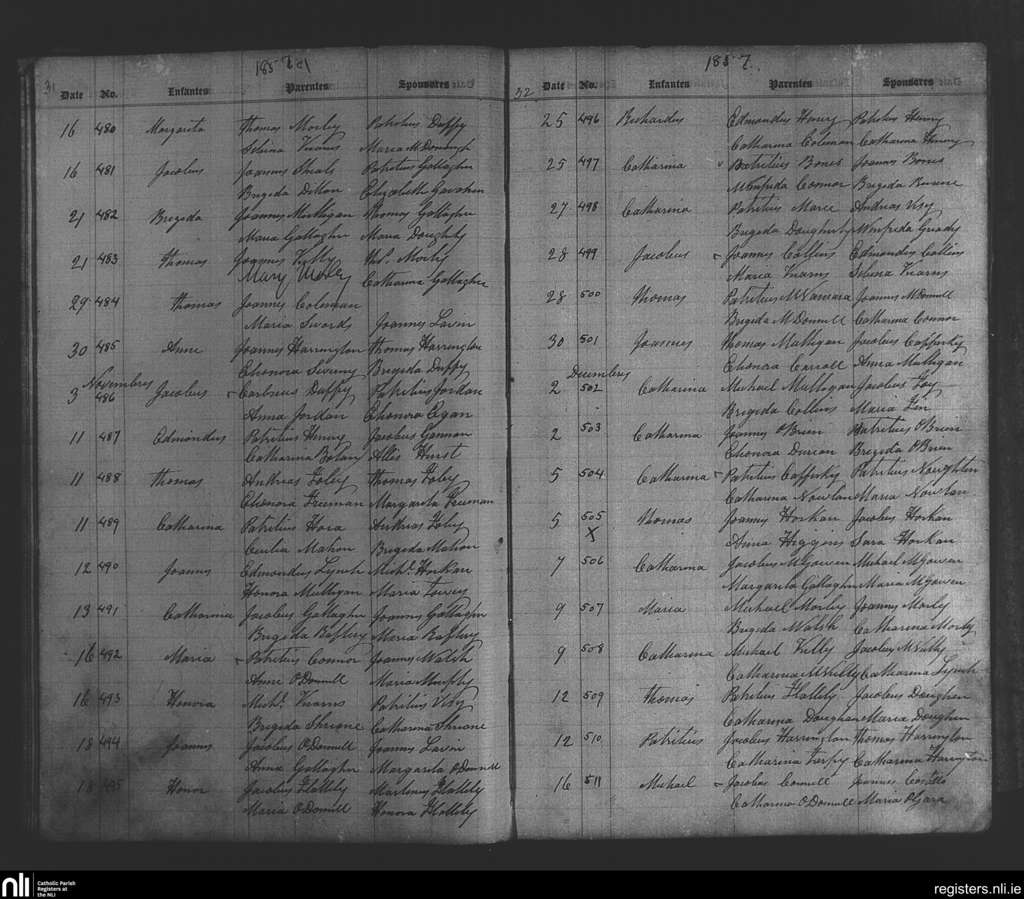 31
1857
Date No. Infantes Parentes Sponsores
16 480 Margarita Thomas Morley Patritius Duffy
Maria McDonough
16 481 Jacobus Joannes Sheals Patritius Gallagher
Brigida Dillon Elizabeth Gavahan
21 482 Brigida Joannes Mulligan Thomas Gallagher
Maria Gallagher Maria Doughty
21 483 Thomas Joannes Kelly Thos. Morley
Mary Morley Catharina Gallagher
29 484 Thomas Joannes Coleman
Maria Swords Joannes Lavin
30 485 Anne Joannes Harrington Thomas Harrington
Elionora Brigida Duffy
Novembris
3 486 Jacobus Patritius Jordan
Duffy
Anna Jordan Elionora Egan
11 487 Edmondus Patritius Henry Jacobus Gannon
Catharina Allis Hurst
11 488 Thomas Andreas Foley Thomas Foley
Elionora Freeman Margarita Freeman
11 489 Catharina Patritius Hora Andreas Foley
Cecilia Mahon Brigida Mahon
12 490 Joannes Edmondus Lynch Michl. Horkan
Honora Mulligan Maria Towey
13 491 Catharina Jacobus Gallagher Joannes Gallagher
Brigida Raftery Maria Raftery
16 492 Maria Patritius Connor Joannes Walsh
Anne O'Donnell Maria Murphy
16 493 Honora Michl. Kearns Patritius
Brigida Shrione Catharina Shrione
18 494 Joannes Jacobus O'Donnell Joannes Lavin
Anna Gallagher Margarita O'Donnell
18 495 Honor Jacobus Flatlely Martinus Flatlely
Maria O'Donnell Honora Flatlely
32
1857
Date No. Infantes Parentes Sponsores
25 496 Richardus Edmondus Henry Patritius Henry
Catharina Coleman Catharina Henry
25 497 Catharina Patritius Bones Joannes Bones
Winifrida Connor Brigida
27 498 Catharina Patritius Maree Andreas
Brigida Dougherty Winifrida Gready
28 499 Jacobus Joannes Collins Edmondus Collins
Maria Kearns Kearns
28 500 Thomas Patritius McNamara Joannes McDonnell
Brigida McDonnell Catharina Connor
30 501 Joannes Thomas Mulligan Jacobus Cafferky
Elionora Carroll Anna Mulligan
Decembris
2 502 Catharina Michael Mulligan Jacobus Foy
Brigida Collins Maria
2 503 Catharina Joannes O'Brien Patritius O'Brien
Elionora Durcan Brigida O'Brien
5 504 Catharina Patritius Cafferky Patritius Noughton
Catharina Nowlan Maria Nowlan
5 505 Thomas Joannes Horkan Jacobus Horkan
X Anna Higgins Sara Horkan
7 506 Catharina Jacobus McGowen Michael McGowen
Margarita Gallagher Maria McGowen
9 507 Maria Michael Morley Joannes Morley
Brigida Walsh Catharina Morley
9 508 Catharina Michael Kelly Jacobus McNulty
Catharina McNulty Catharina Lynch
12 509 Thomas Patritius Flatlely Jacobus Doughan
Catharina Doughan Maria Doughan
12 510 Patritius Jacobus Harrington Thomas Harrington
Catharina Torpy Catharina Harrington
16 511 Michael Jacobus Connell Joannes Costello
Catharina O'Donnell Maria O'Gara
nli Catholic Parish
Registers at
the NLI
registers.nli.ie